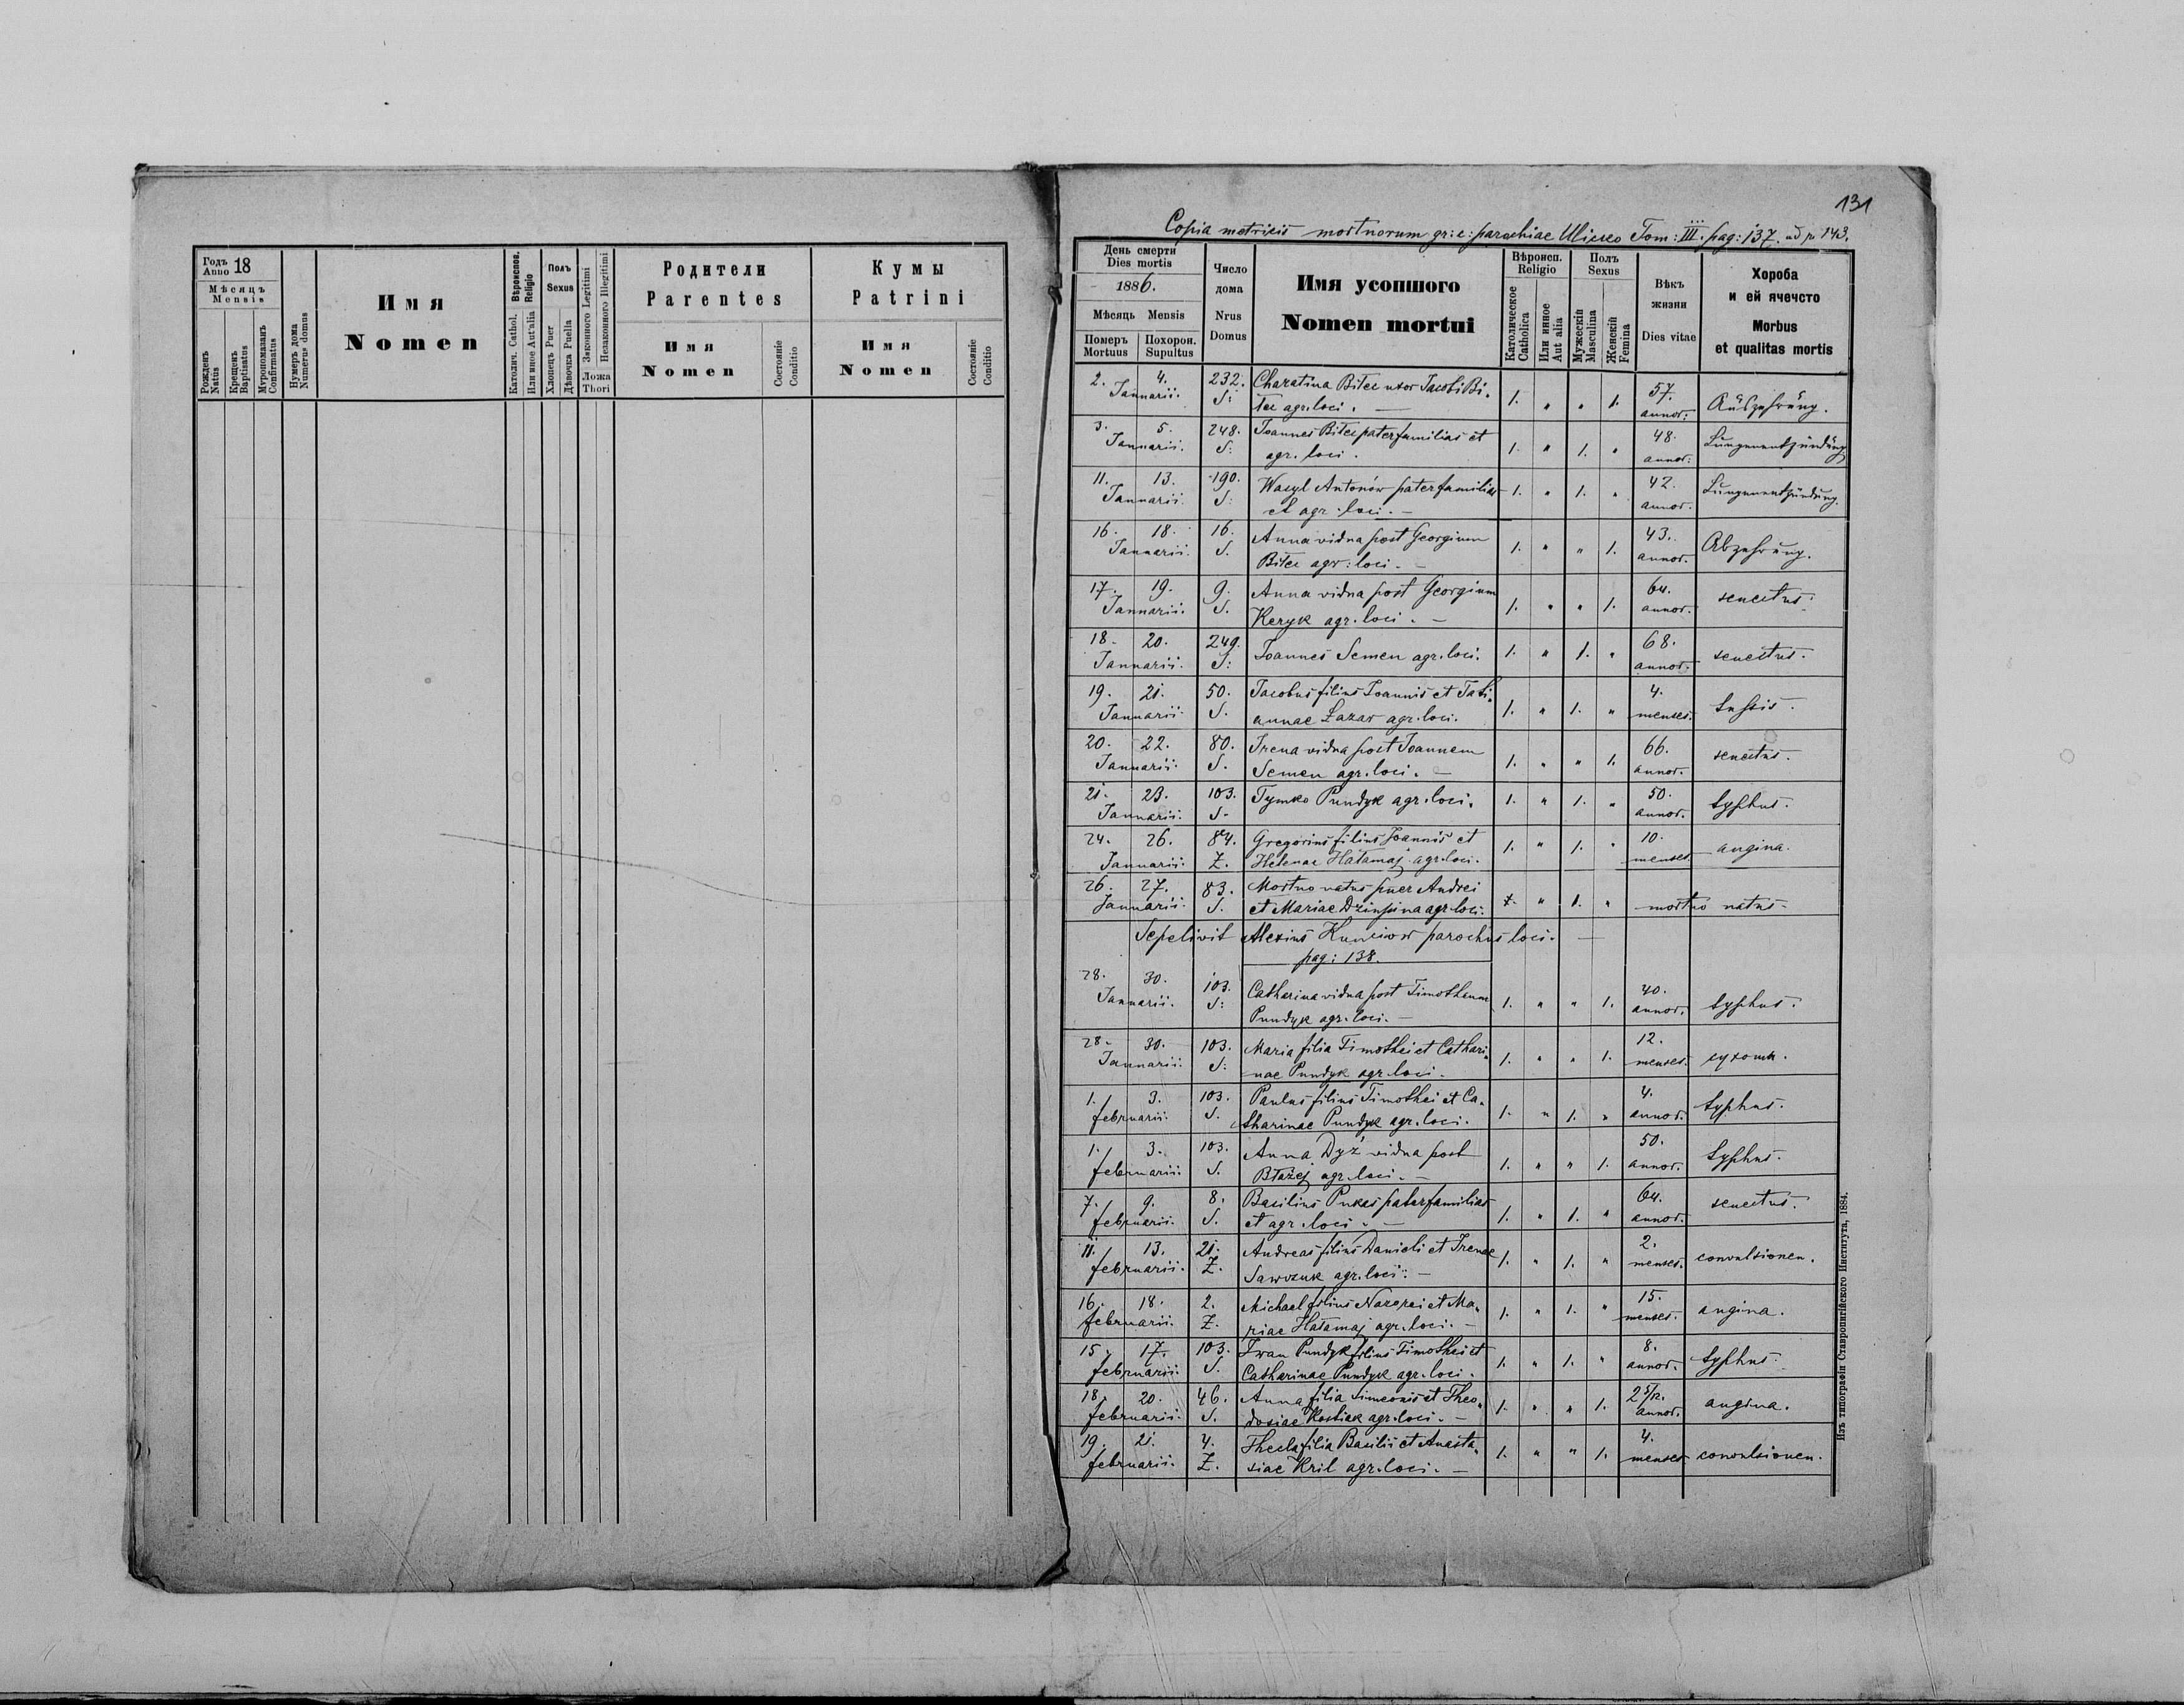 131
Copia metricis mortuorum gr: c: parochiae Ulicko Tom: III. pag: 137. ad p. 143.
Годъ Anno 18
Мѣсяцъ Mensis
Рожденъ Natus
Крещенъ Baptisatus
Мѵропомазанъ Confirmatus
Нумеръ дома Numerus domus
Имя
Nomen
Вѣроиспов. Religio
Католич. Cathol.
Или иное Aut'alia
Полъ Sexus
Хлопець Puer
Дѣвочка Puella
Законного Legitimi
Незаконного Illegitimi
Ложа Thori
Родители
Parentes
Имя
Nomen
Состояніе Conditio
Кумы
Patrini
Имя
Nomen
Состояніе Conditio
День смерти
Dies mortis
1886.
Мѣсяць Mensis
Померъ Mortuus
Похорон. Supultus
Число дома
Nrus Domus
Имя усопшого
Nomen mortui
Вѣроисп. Religio
Католическое Catholica
Или инное Aut alia
Полъ Sexus
Мужескій Masculina
Женскій Femina
Вѣкъ жизни
Dies vitae
Хороба
и ей ячечсто
Morbus
et qualitas mortis
2. 4. 232. Charatina Bilec uxor Jacobi Bi-
Januarii. S: lec agr. loci. — 1. " " 1. 57. annor: Auszehrung.
3. 5. 248. Joannes Bilec paterfamilias et
Januarii. S: agr. loci. 1. " 1. " 48. annor: Lungenentzündung
11. 13. 190. Wasyl Antonów paterfamilias
Januarii. S: et agr. loci. — 1. " 1. " 42. annor. Lungenentzündung.
16. 18. 16. Anna vidua post Georgium
Januarii. S. Bilec agr: loci. — 1. " " 1. 43. annor. Abzehrung.
17. 19. 9. Anna vidua post Georgium
Januarii. S. Keryk agr. loci. — 1. " " 1. 64. annor. senectus.
18. 20. 249. Joannes Semen agr. loci.
Januarii. S: 1. " 1. " 68. annor. senectus.
19. 21. 50. Jacobus filius Joannis et Tati-
Januarii. S. annae Lazar agr. loci. 1. " 1. " 4. menses. tussis.
20. 22. 80. Irena vidua post Joannem
Januarii. S. Semen agr. loci. — 1. " " 1. 66. annor. senectus.
21. 23. 103. Tymko Pundyk agr. loci.
Januarii. S. 1. " 1. " 50. annor. typhus.
24. 26. 84. Gregorius filius Joannis et
Januarii. Z. Helenae Hałamaj agr. loci. 1. " 1. " 10. menses angina.
26. 27. 83. Mortuo natus puer Andrei
Januarii. S. et Mariae agr. loci. " 1. " mortuo natus.
Sepelivit Alexius parochus loci. —
pag: 138.
28. 30. 103. Catharina vidua post Timotheum
Januarii. S: Pundyk agr. loci. — 1. " " 1. 40. annor. typhus.
28. 30. 103. Maria filia Timothei et Cathari-
Januarii. S: nae Pundyk agr. loci. 1. " " 1. 12. menses. сухоты.
1. 3. 103. Paulus filius Timothei et Ca-
februarii. S. tharinae Pundyk agr. loci. 1. " 1. " 4. annor. typhus.
1. 3. 103. Anna Dyź vidua post
februarii. S. Błażej agr. loci. — 1. " " 1. 50. annor. typhus.
7. 9. 8. Basilius Pukas paterfamilias
februarii. S. et agr. loci. — 1. " 1. " 64. annor. senectus.
11. 13. 21. Andreas filius Danieli et Irenae
februarii. Z. Sawczuk agr. loci. — 1. " 1. " 2. menses. convulsionen.
16. 18. 2. Michael filius et Ma-
februarii. Z. riae Hałamaj agr. loci. — 1. " 1. " 15. menses. angina.
15. 17. 103. Iwan Pundyk filius Timothei et
februarii. S. Catharinae Pundyk agr. loci. 1. " 1. " 8. annor. typhus.
18. 20. 46. Anna filia Simeonis et Theo-
februarii. S. dosiae Kostiak agr. loci. — 1. " " 1. 2 5/12. annor. angina.
19. 21. 4. Thecla filia Basilii et Anasta-
februarii. Z. siae Kril agr. loci. — 1. " " 1. 4. menses convulsionen.
Изъ типографіи Ставропигійского Института, 1884.